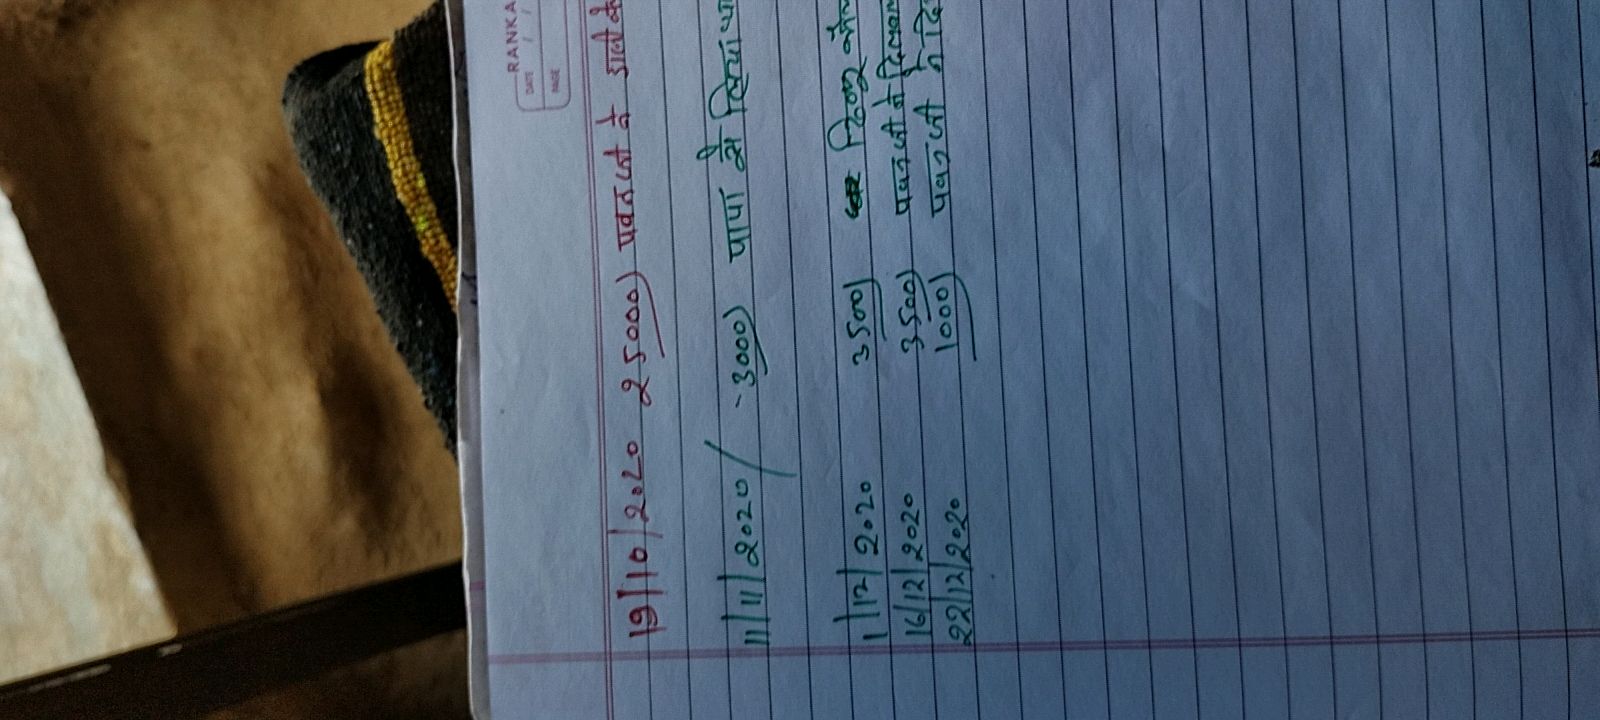 RANKA
DATE / /
PAGE
19/10/2020 25000) पवनजी ने डालो के
11/11/2020/ 3000) पापा से लिया था
1/12/2020 3500)
16/12/2020 3500) पवनजी ने
22/12/2020 1000) पवनजी ने